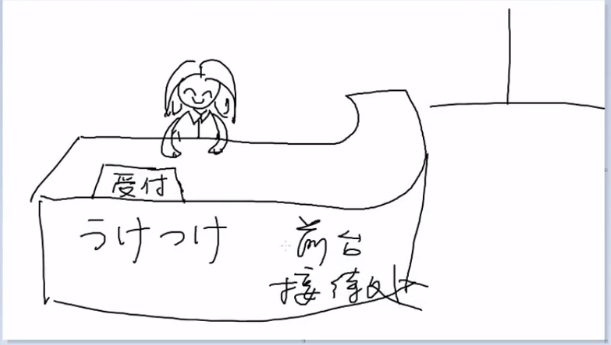 受付
うけつけ
前台
接待处